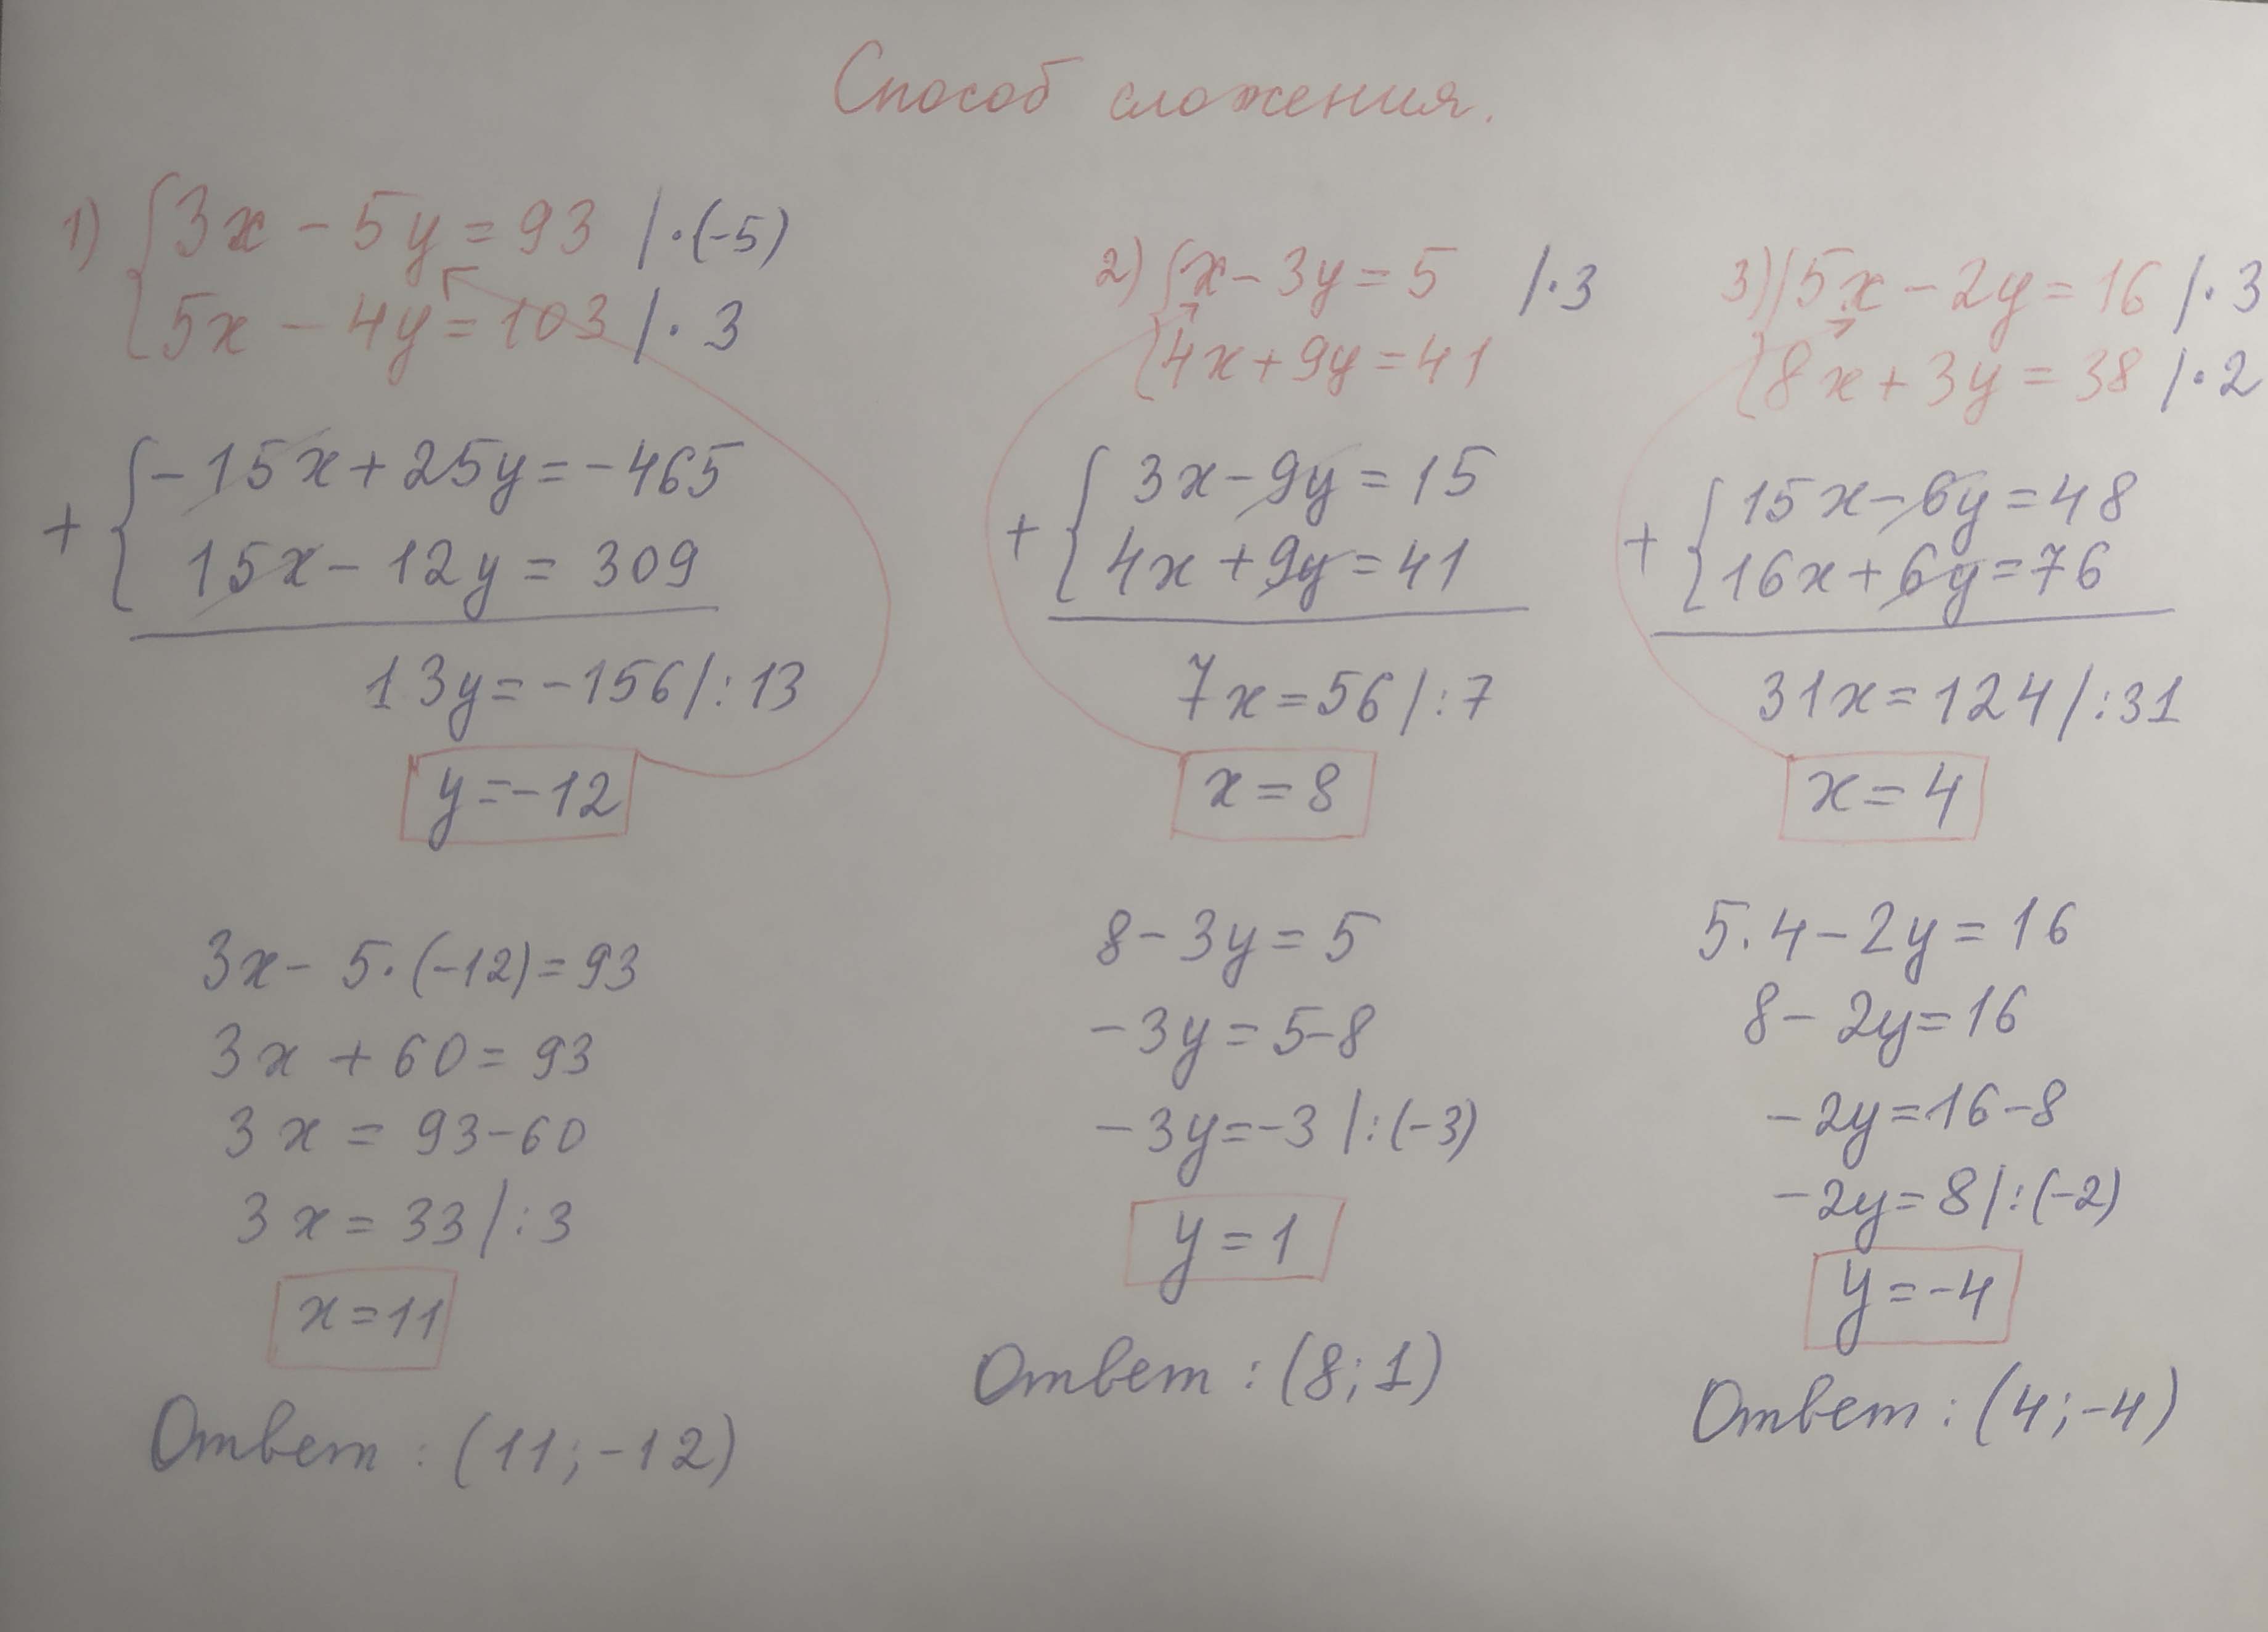 Способ сложения.
1) {3x - 5y = 93 /·(-5)
5x - 4y = 103 /· 3
+ {-15x + 25y = -465
15x - 12y = 309
13y = -156 /:13
y = -12
3x - 5·(-12) = 93
3x + 60 = 93
3x = 93-60
3x = 33 /:3
x = 11
Ответ : (11; -12)
2) {x - 3y = 5 /·3
4x + 9y = 41
+ {3x - 9y = 15
4x + 9y = 41
7x = 56 /:7
x = 8
8 - 3y = 5
-3y = 5-8
-3y = -3 /:(-3)
y = 1
Ответ : (8; 1)
3) {5x - 2y = 16 /·3
8x + 3y = 38 /·2
+ {15x - 6y = 48
16x + 6y = 76
31x = 124 /:31
x = 4
5·4 - 2y = 16
8 - 2y = 16
-2y = 16-8
-2y = 8 /:(-2)
y = -4
Ответ : (4; -4)